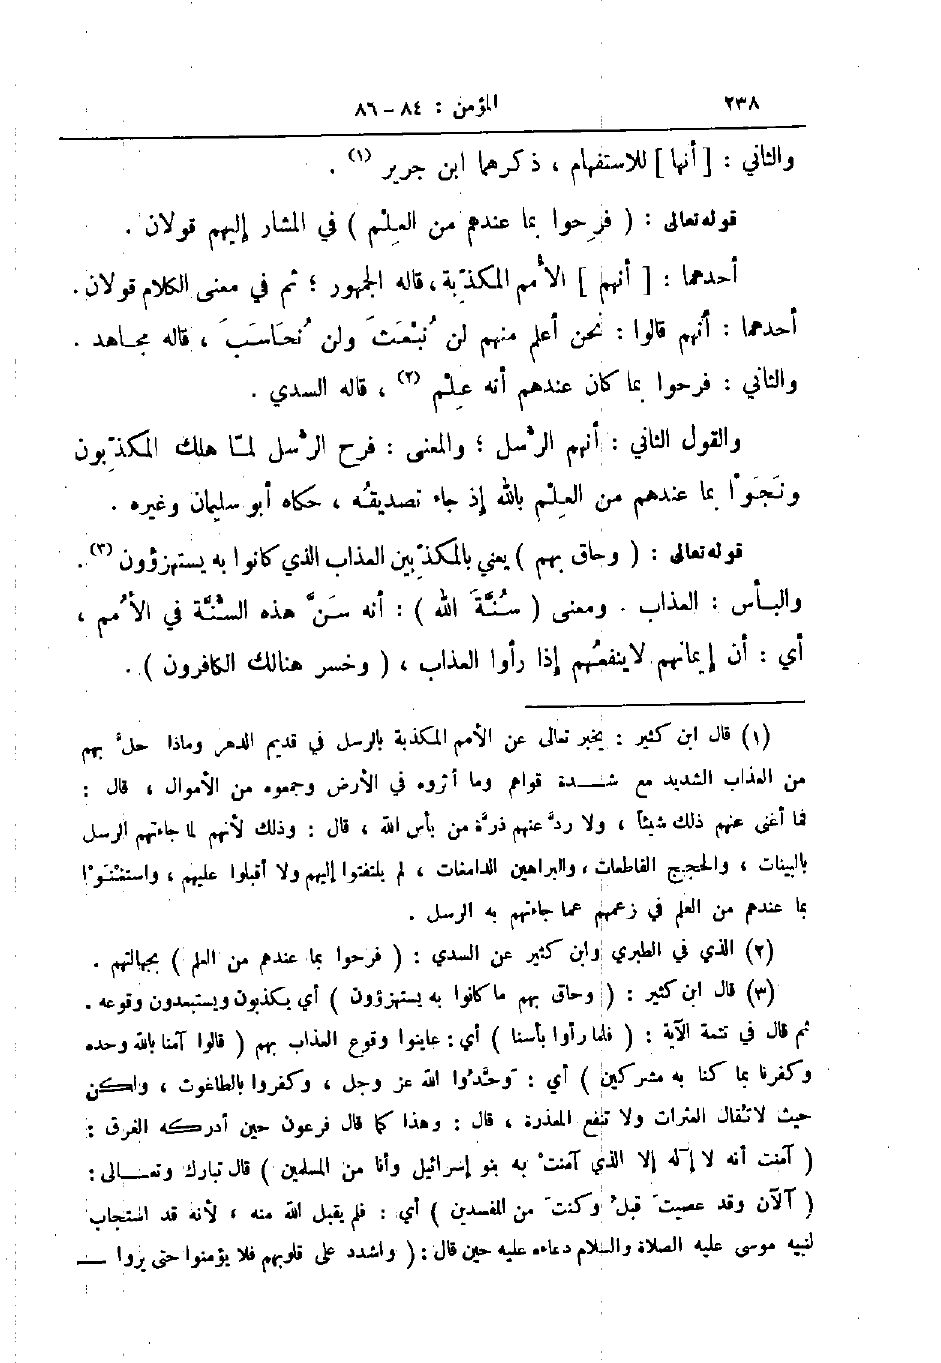 ٢٣٨
المؤمن : ٨٤ – ٨٦
والثاني : [ أنها ] للاستفهام ، ذكرهما ابن جرير (١) .
قوله تعالى : ( فرِحوا بما عندهم من العِلْم ) في المشار إليهم قولان .
أحدهما : [ أنهم ] الأُمم المكذِّبة ، قاله الجمهور ؛ ثم في معنى الكلام قولان .
أحدهما : أنهم قالوا : نحن أعلم منهم لن نُبْعَثَ ولن نُحاسَبَ ، قاله مجاهد .
والثاني : فرحوا بما كان عندهم أنه عِلْم (٢) ، قاله السدي .
والقول الثاني : أنهم الرُّسل ؛ والمعنى : فرح الرُّسل لمّا هلك المكذِّبون
ونَجَوْا بما عندهم من العِلْم بالله إذ جاء تصديقُه ، حكاه أبو سليمان وغيره .
قوله تعالى : ( وحاق بهم ) يعني بالمكذِّبين العذاب الذي كانوا به يستهزؤون (٣) .
والبأس : العذاب . ومعنى ( سُنَّةَ الله ) : أنه سَنَّ هذه السُّنَّة في الأُمم ،
أي : أن إيمانهم لاينفعُهم إذا رأوا العذاب ، ( وخسر هنالك الكافرون ) .
(١) قال ابن كثير : يخبر تعالى عن الأمم المكذبة بالرسل في قديم الدهر وماذا حلَّ بهم
من العذاب الشديد مع شــدة قواهم وما أثروه في الأرض وجمعوه من الأموال ، قال :
فما أغنى عنهم ذلك شيئاً ، ولا ردَّ عنهم ذرَّة من بأس الله ، قال : وذلك لأنهم لما جاءتهم الرسل
بالبينات ، والحجج القاطعات ، والبراهين الدامغات ، لم يلتفتوا إليهم ولا أقبلوا عليهم ، واستغْنَوْا
بما عندهم من العلم في زعمهم عما جاءتهم به الرسل .
(٢) الذي في الطبري وابن كثير عن السدي : ( فرحوا بما عندهم من العلم ) بجهالتهم .
(٣) قال ابن كثير : ( وحاق بهم ما كانوا به يستهزؤون ) أي يكذبون ويستبعدون وقوعه .
ثم قال في تتمة الآية : ( فلما رأوا بأسنا ) أي : عاينوا وقوع العذاب بهم ( قالوا آمنا بالله وحده
وكفرنا بما كنا به مشركين ) أي : وَحَّدُوا الله عز وجل ، وكفروا بالطاغوت ، ولكن
حيث لاتُقال العثرات ولا تنفع المعذرة ، قال : وهذا كما قال فرعون حين أدركه الغرق :
( آمنت أنه لا إله إلا الذي آمنتْ به بنو إسرائيل وأنا من المسلمين ) قال تبارك وتعــالى :
( آلآن وقد عصيتَ قبلُ وكنتَ من المفسدين ) أي : فلم يقبل الله منه ، لأنه قد استجاب
لنبيه موسى عليه الصلاة والسلام دعاءه عليه حين قال : ( واشدد على قلوبهم فلا يؤمنوا حتى يروا —